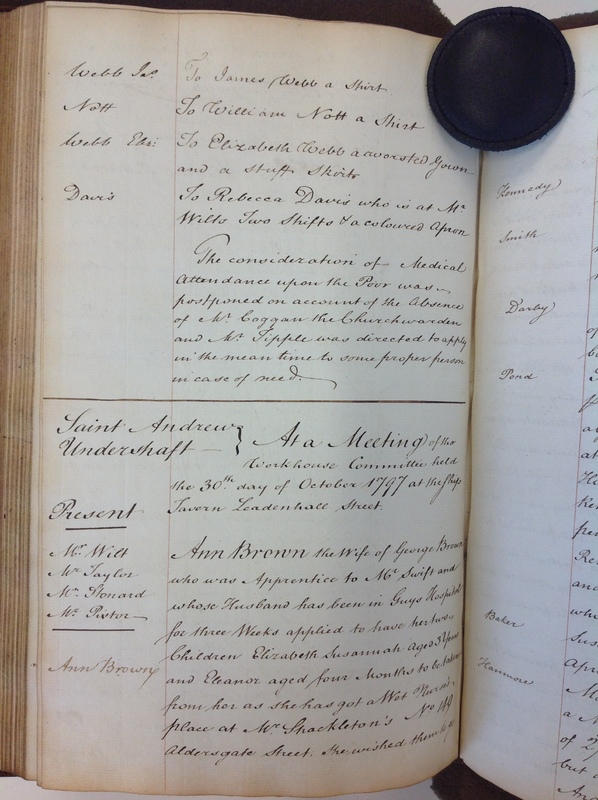 Webb Jas. To James Webb a Shirt
Nott To William Nott a Shirt
Webb Eliz: To Elizabeth Webb a worsted Gown
and a Stuff Skirt
Davis To Rebecca Davis who is at Mr.
Wilts Two Shifts & a coloured Apron
The consideration of Medical
Attendance upon the Poor was
postponed on account of the Absence
of Mr. Coggan the Churchwarden
and Mr. Tipple was directed to apply
in the mean time to some proper person
in case of need.
Saint Andrew
Undershaft } At a Meeting of the
Workhouse Committee held
the 30th day of October 1797 at the Ship
Tavern Leadenhall Street.
Present
Mr. Wilt
Mr. Taylor
Mr. Stonard
Mr. Pistor
Ann Brown
Ann Brown the Wife of George Brown
who was Apprentice to Mr. Swift and
whose Husband has been in Guys Hospital
for three Weeks applied to have her two
Children Elizabeth Susannah aged 3 Years
and Eleanor aged four Months to be taken
from her as she has got a Wet Nurse's
place at Mr. Shackleton's No. 149
Aldersgate Street. She wished them to
Kennedy
Smith
Darby
Pond
Baker
Hanmore